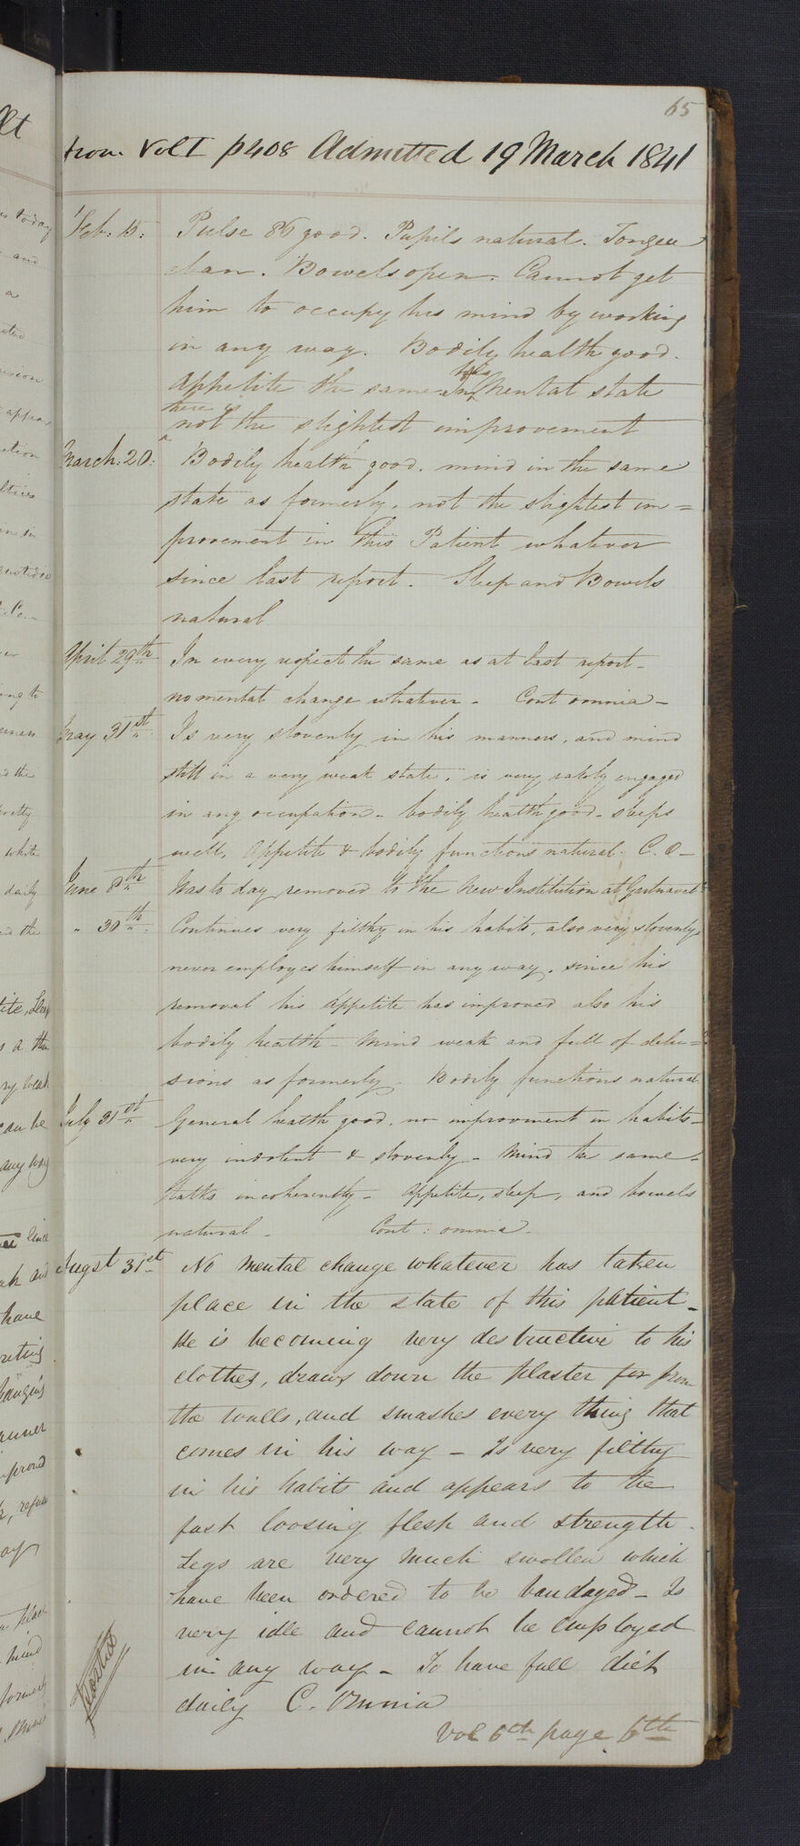 65
from Vol I p408 Admitted 19 March 1841
Feb: 15: Pulse 86 good. Pupils natural. Tongue
clean. Bowels open. Cannot get
him to occupy his mind by working
in any way. Bodily health good.
Appetite the same in Mental state
there is
not the slightest improvement
March: 20: Bodily health good. mind in the same
state as formerly. not the slightest im=
provement in this Patient whatever
since last report. Sleep and Bowels
natural
April 29th In every respect the same as at last report-
no mental change whatever - Cont omnia -
May 31st Is very slovenly in his manners, and mind
still in a very weak state, is very rarely engaged
in any occupation - bodily health good - sleeps
well, Appetite & bodily functions natural - C. O -
June 8th Was to day removed to the New Institution at Gartnavel
" 30th Continues very filthy in his habits, also very slovenly,
never employes himself in any way. since his
removal his Appetite has improved also his
bodily health - Mind weak and full of delu=
sions as formerly. Bodily functions natural
July 31st General health good. no improvment in habits -
very indolent & slovenly - Mind the same -
talks incoherently - Appetite, sleep, and bowels
natural - Cont: omnia -
Augst 31st No mental change whatever has taken
place in the state of this patient -
He is becoming very destructive to his
clothes, draws down the plaster for from
the walls, and smashes every thing that
comes in his way - Is very filthy
in his habits and appears to the
fast loosing flesh and strength.
Legs are very much swollen which
have been ordered to be bandaged - Is
very idle and cannot be employed
in any way - To have full diet
daily C. Omnia
Vol 6th page 6th